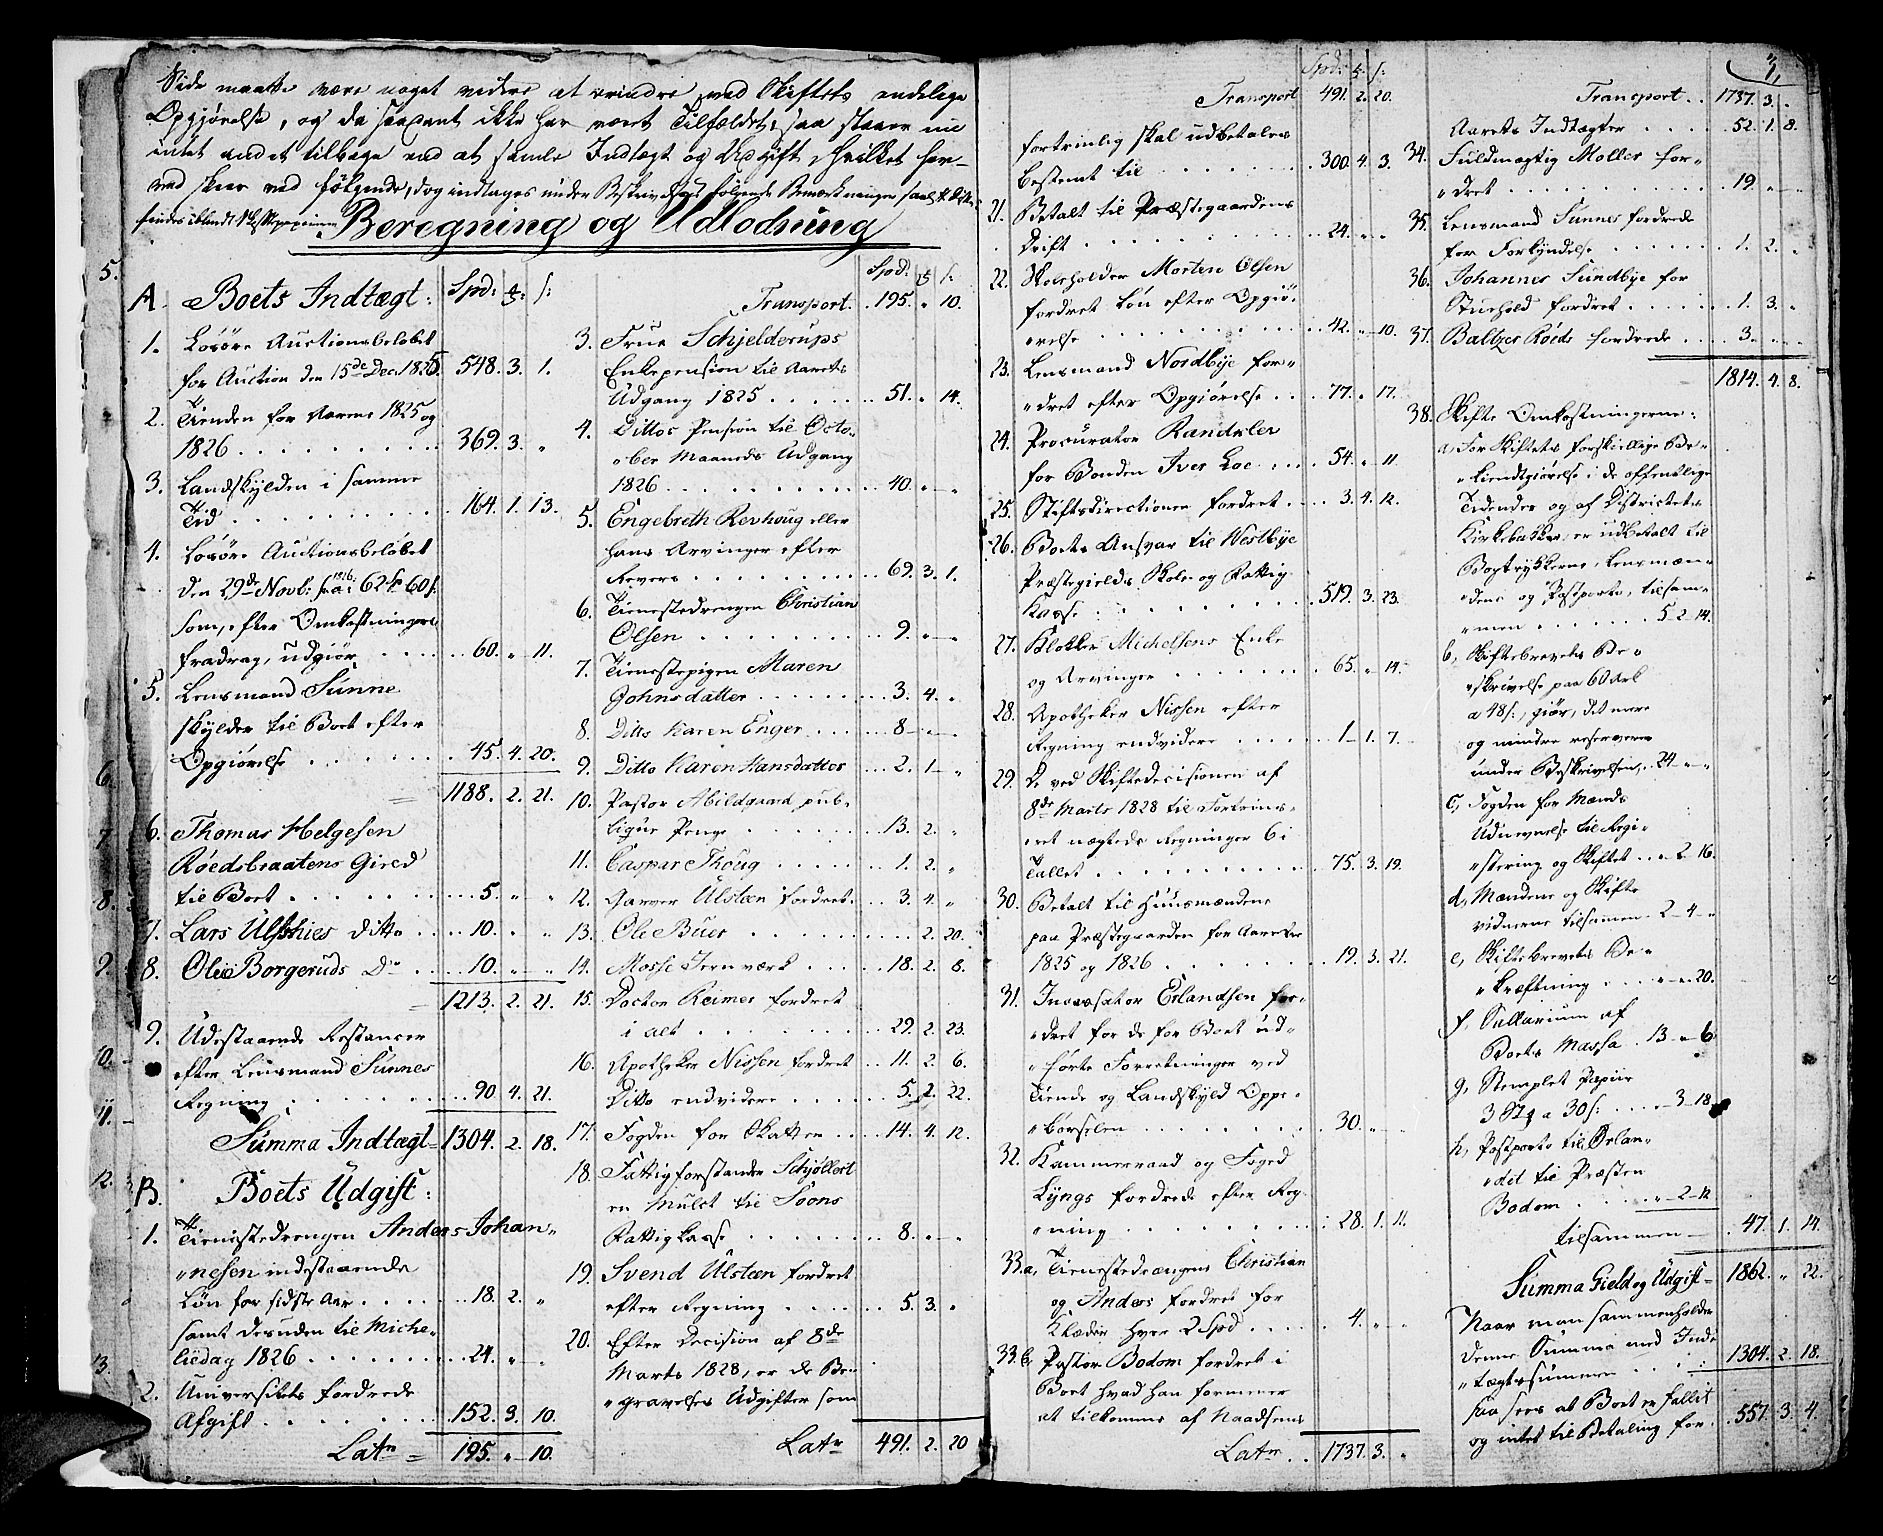 Side maatte være noget videre at erindre ved Skiftets endelige
Opgjørelse, og da saadant ikke har været Tilfældet, saa staaer nu
intet andet tilbage end at samle Indtægt og Udgift, hvilket her-
ved skeer ved følgende, dog indtages under Beskrivelsen følgende Bemærkninger
findes iblandt
Beregning og Udlodning
A. Boets Indtægt: Spd: ʒ: s:
1. Løsøre Auctionsbeløbet
for Auction den 15de Dec. 1825. 548. 3. 1.
2. Tienden for Aarene 1825 og
1826 . . . 369. 3. "
3. Landskylden i samme
Tid . . . 164. 1. 13.
4. Løsøre Auctionsbeløbet
den 29de Novb: 1826:
som, efter Omkostningers
fradrag, udgiør . . . 60. " 11.
5. Lensmand Sunne
skylder til Boet efter
Opgiørelse . . . 45. 4. 20.
1188. 2. 21.
6. Thomas Helgesen
Røedsbraatens Gield
til Boet . . . 5. " "
7. Lars Ulfshies ditto . . . 10. " "
8. Ole Borgeruds Do . . . 10. " "
1213. 2. 21.
9. Udestaaende Restancer
efter Lensmand Sunnes
Regning . . . 90. 4. 21.
Summa Indtægt 1304. 2. 18.
B. Boets Udgift:
1. Tienistedrengen Anders Johan-
"nesen indestaaende
Løn for sidste Aar . . . 18. 2. "
samt desuden til Miche-
lisdag 1826 . . . 24. " "
2. Universitets fordrede
Afgift . . . 152. 3. 10.
Latr 195. " 10.
Spd: ʒ s:
Transport. 195. " 10.
3. Frue Schjelderups
Enkepension til Aarets
Udgang 1825 . . . 51. " 14.
4. Dittos Pension til Octo-
"ber Maaneds Udgang
1826 . . . 40. " "
5. Engebreth Revhoug eller
hans Arvinger efter
Revers . . . 69. 3. 1.
6. Tienestedrengen Christian
Olsen . . . 9. " "
7. Tienestepigen Maren
Johnsdatter . . . 3. 4. "
8. Ditto Karen Enger . . . 8 " "
9. Ditto Karen Hansdatter . . . 2. 1 "
10. Pastor Abildgaard pub-
liqve Penge . . . 13. 2. "
11. Caspar Thoug . . . 1. 2. "
12. Garver Ulstæn fordret . . . 3. 4. "
13. Ole Buer . . . 2. 20.
14. Mosse Jernværk . . . 18. 2. 8.
15. Doctor Reimer fordret
i alt . . . 29. 2. 23.
16. Apotheker Nissen fordret . . . 11. 2. 6.
Ditto endvidere . . . 5. 2. 22.
17. Fogden for Skatten . . . 14. 4. 12.
18. Fattigforstander Schjøllert
en Mulct til Soons
Fattigkasse . . . 8. " "
19. Svend Ulstæn fordret
efter Regning . . . 5. 3. "
20. Efter Decision af 8de
Marts 1828, er de Be-
"gravelses Udgifter som
Latr 491. 2. 20
Spd: ʒ: s:
Transport 491. 2. 20.
fortrinlig skal udbetales
bestemt til . . . 300. 4. 3.
21. Betalt til Præstegaardens
Drift . . . 24. " "
22. Skoleholder Morten Olsen
fordret Løn efter Opgiø-
relse . . . 42. " 10.
23. Lensmand Nordbye for-
"dret efter Opgiørelse . . 77. " 17.
24. Procurator Randkler
for Bonden Iver Loe . . . 54. " 11.
25. Stiftsdirectionen fordret . . . 3. 4. 12.
26. Boets Ansvar til Westbye
Præstegields Skole og Fattig
Kasse . . . 519. 3. 23.
27. Klokker Michelsens Enke
og Arvinger . . . 65. " 14.
28. Apotheker Nissen efter
Regning endvidere . . . 1 1. 7.
29. De ved Skiftedecisionen af
8de Marts 1828 til Fortrins-
ret nægtede Regninger 6 i
Tallet . . . 75. 3. 19.
30. Betalt til Huusmændene
paa Præstegaarden for Aarene
1825 og 1826 . . . 19. 3. 21.
31. Incassator Erlandsen for-
"dret for de for Boet ud-
"førte Forretninger ved
Tiende og Landskyld Oppe-
"børselen . . . 30. " "
32. Kammerraad og Foged
Lyngs fordrede efter Reg-
"ning . . . 28. 1. 11.
33.a, Tienestedrængene Christian
og Anders fordret for
Klæder hver 2 Spd . . . 4. " "
33.b, Pastor Bodom fordret i
Boet hvad han formener
at tilkomme af Naadsens
Latr . . 1737. 3. "
7.
Transport . . 1737. 3. "
Aarets Indtægter . . . 52. 1. 8.
34. Fuldmægtig Møller for-
"dret . . . 19 " "
35. Lensmand Sunnes fordrede
for Forkyndelse . . . 1. 2. "
36. Johannes Sundbye for
Stuehold fordret . . . 1. 3. "
37. Baltzer Røeds fordrede . . . 3. " "
1814. 4. 8.
38. Skifte Omkostningerne:
a, For Skiftets forskiellige Be-
"kiendtgiørelse i de offentlige
Tidender og af Districtets
Kirkebakker, er udbetalt til
Bogtrykkerne, Lensmæn-
"dene og Postporto, tilsam-
"men . . . 5 2 14.
b, Skiftebrevets Be-
"skrivelse paa 60 Ark
a 48 s:, giør, det mere
og mindre reserveres
under Beskrivelsen, . 24 " "
c, Fogden for Mænds
Udnevnelse til Regi-
"stering og Skiftet . . 2 16.
d, Mændene og Skifte
vidnerne tilsamen . 2 4 "
e, Skiftebrevets Be-
"kræftning . . . " " 20.
f, Sallarium af
Boets Massa . 13 " 6
g, Stemplet Papiir
3 St: a 30 s: . . . 3 18
h, Postporto til Ørlan-
"det til Præsten
Bodom . . . " 2 12
tilsammen . 47. 1. 14.
Summa Gield og Udgift 1862. " 22.
Naar man sammenholder
denne Summa med Ind-
"tægtssummen . . . 1304. 2. 18.
saa sees at Boet er fallit
og intet til Betaling for . 557. 3. 4.
5.
6.
7
8.
9.
10.
11.
12.
13.